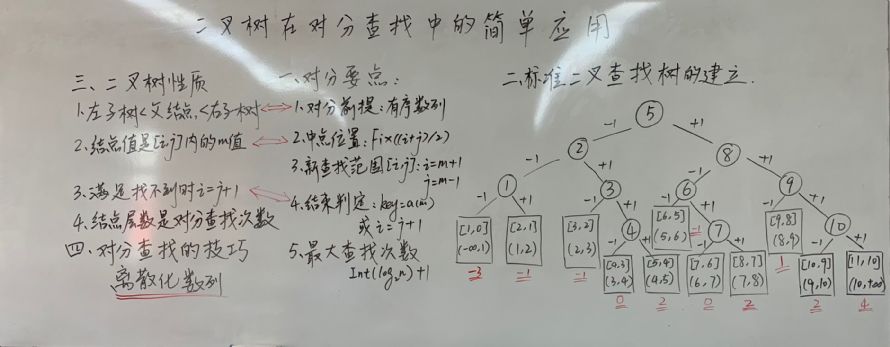 二叉树在对分查找中的简单应用
三、二叉树性质
1.左子树<父结点,<右子树
2.结点值是[i,j]内的m值
3.满足找不到时i=j+1
4.结点层数是对分查找次数
四、对分查找的技巧
离散化数列
一、对分要点:
1.对分前提:有序数列
2.中点位置:Fix((i+j)/2)
3.新查找范围[i,j]:i=m+1
j=m-1
4.结束判定:key=a(m)
或i=j+1
5.最大查找次数
Int(log₂n)+1
二、标准二叉查找树的建立.
5
-1 +1
2 8
-1 +1 -1 +1
1 3 6 9
-1 +1 -1 +1 -1 +1 -1 +1
[1,0] [2,1] [3,2] 4 [6,5] 7 [9,8] 10
(-∞,1) (1,2) (2,3) (5,6) (8,9)
-3 -1 -1 -1 1
-1 +1 -1 +1 -1 +1
[4,3] [5,4] [7,6] [8,7] [10,9] [11,10]
(3,4) (4,5) (6,7) (7,8) (9,10) (10,+∞)
0 2 0 2 2 4